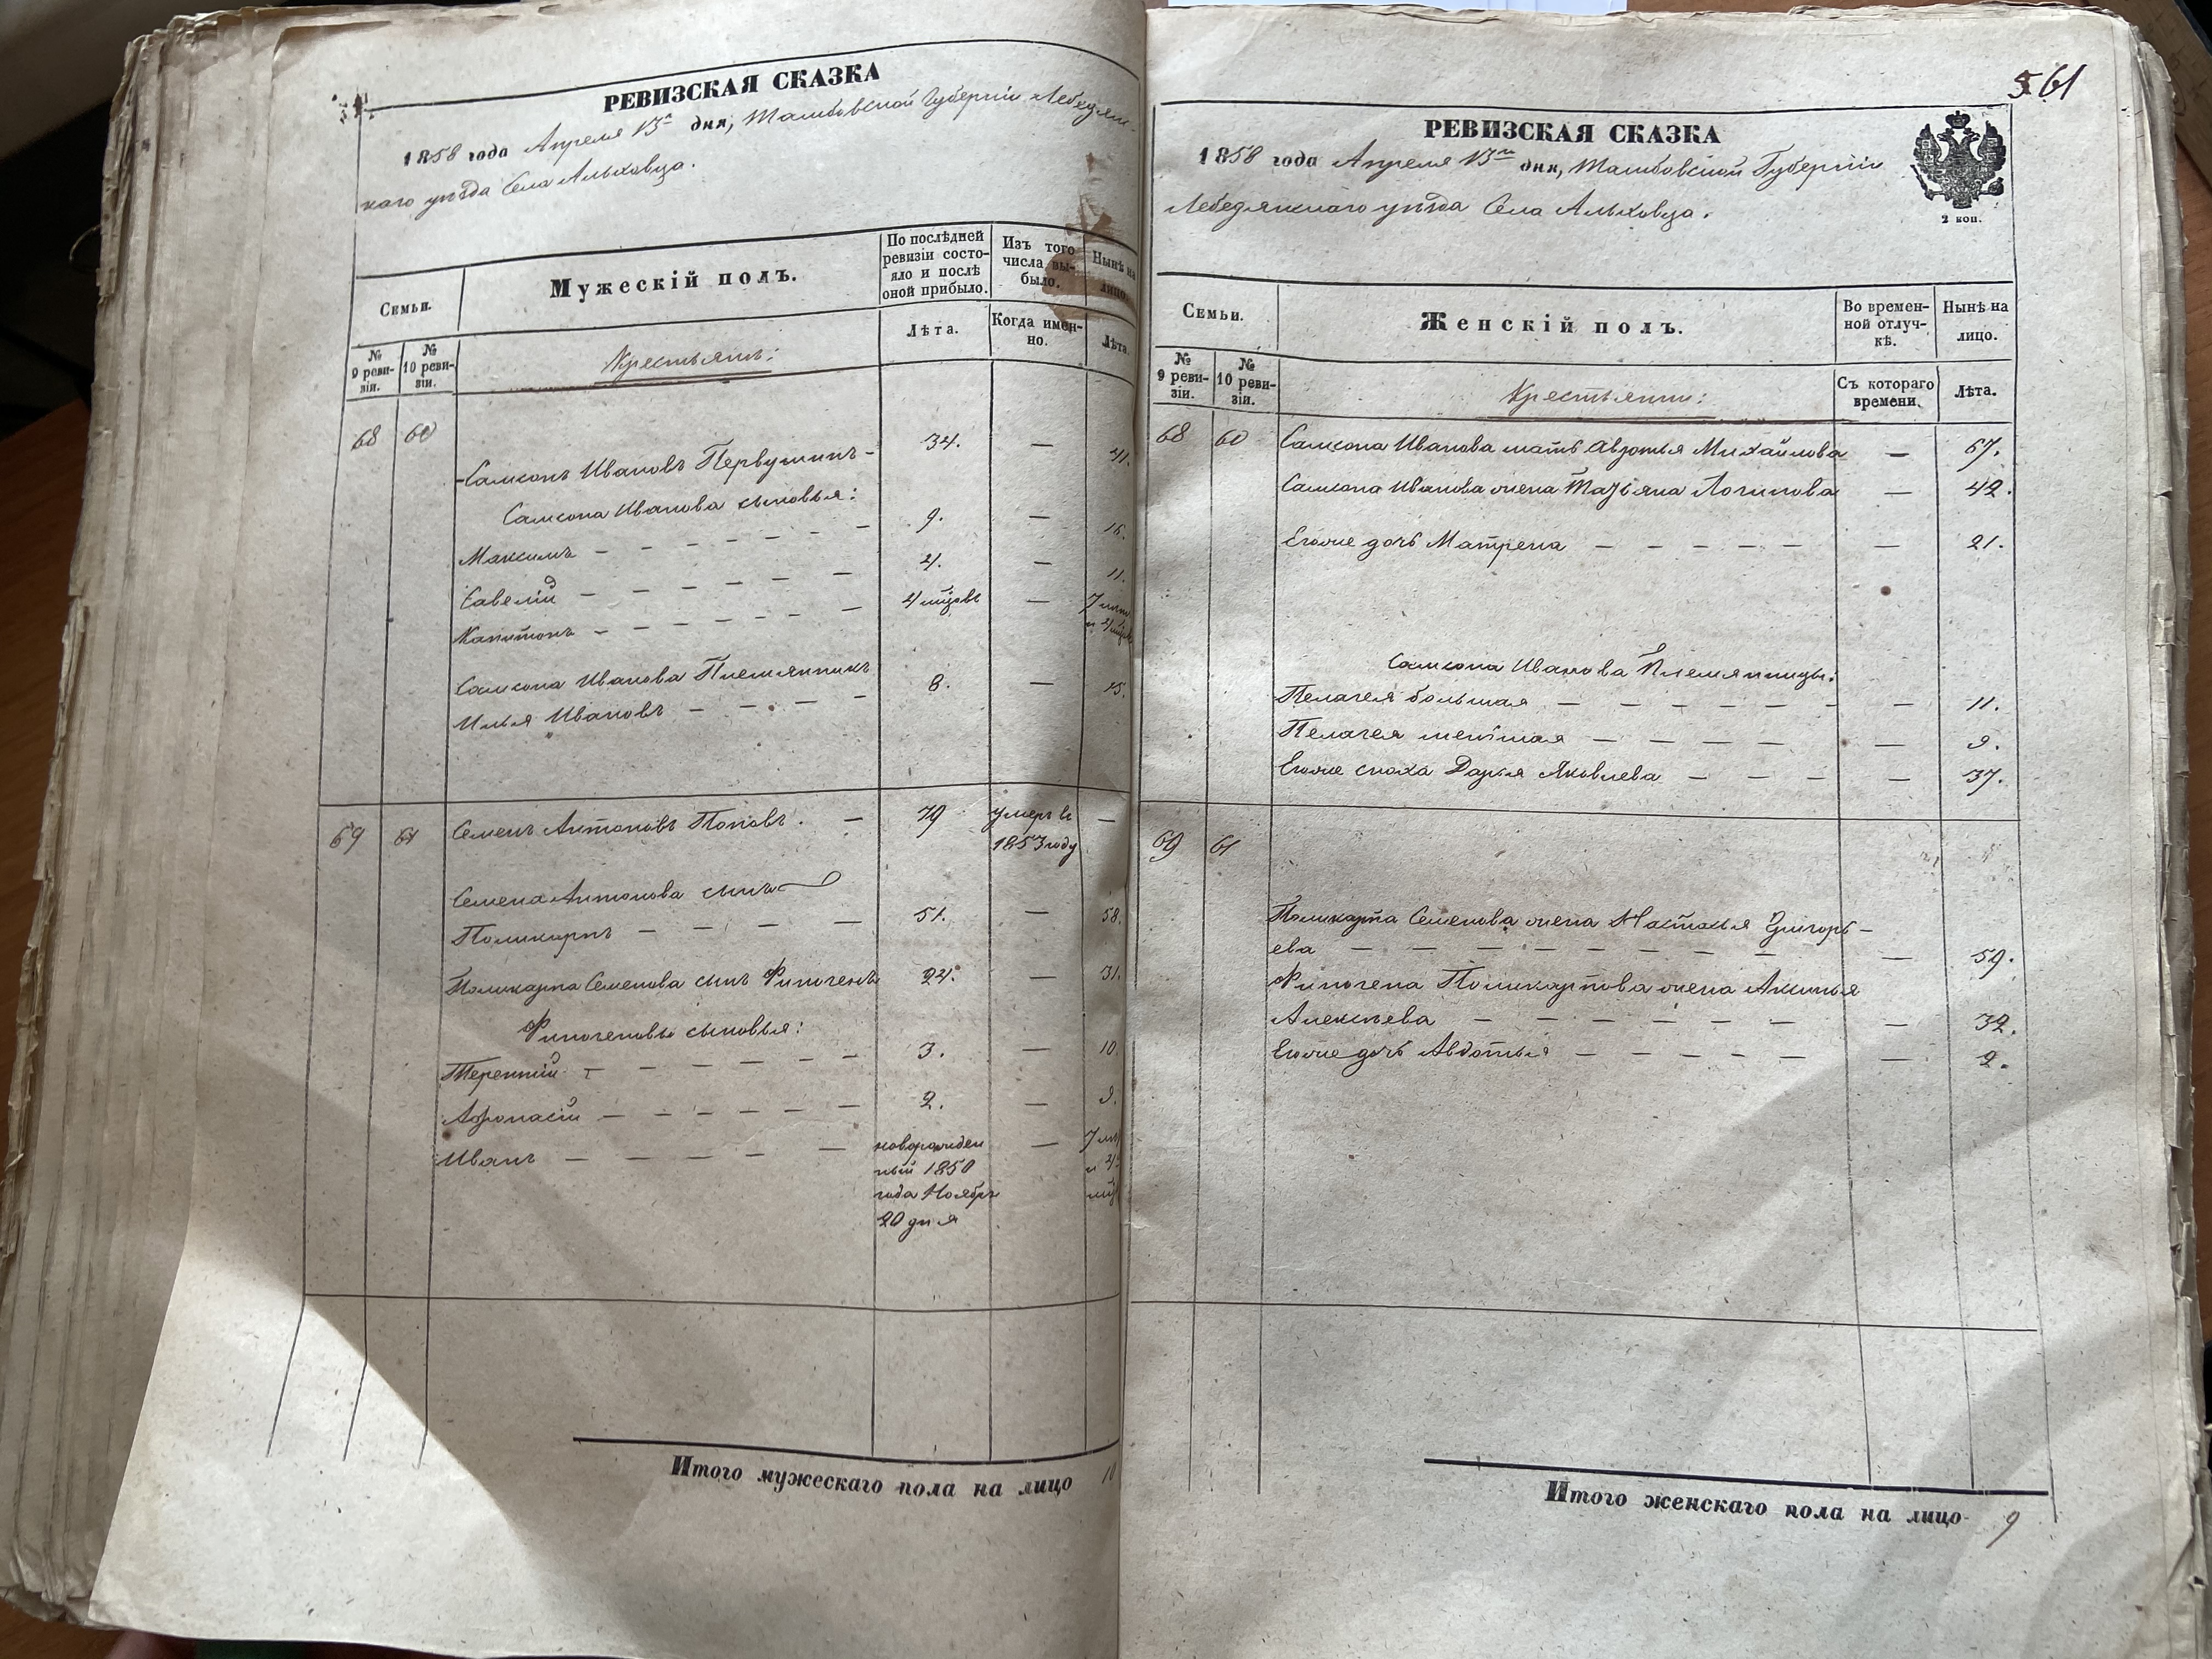 РЕВИЗСКАЯ СКАЗКА
1858 года Апреля 13 дня, Тамбовской Губерніи Лебедян-
скаго уѣзда Села Альховца.
Семьи.
Мужескій полъ.
По послѣдней ревизіи состояло и послѣ оной прибыло.
Изъ того числа выбыло.
Нынѣ на лицо.
№ 9 ревизіи.
№ 10 ревизіи.
Крестьянъ:
Лѣта.
Когда именно.
Лѣта.
68 60
Самсонъ Ивановъ Первушинъ - 34. — 41.
Самсона Иванова сыновья:
Максимъ — — — — — — 9. — 16.
Савелій — — — — — — 4. — 11.
Капитонъ — — — — — — 4 мѣсѣцъ — 7 лѣтъ и 4 мѣс
Самсона Иванова Племянникъ
Илья Ивановъ — — — — 8. — 15.
69 61 Семенъ Антоновъ Поповъ. — 79 умеръ въ —
1853 году
Семена Антонова сынъ
Поликарпъ — — — — 51. — 58.
Поликарпа Семенова сынъ Финогенъ 24. — 31.
Финогеновы сыновья:
Терентій — — — — — — 3. — 10.
Афонасій — — — — — — 2. — 9.
Иванъ — — — — — новорожден — 7 лѣт
ный 1850 и 4
года Ноября мѣс
20 дня
Итого мужескаго пола на лицо 10
61
РЕВИЗСКАЯ СКАЗКА
1858 года Апреля 13 дня, Тамбовской Губерніи
2 коп.
Лебедянскаго уѣзда Села Альховца.
Семьи.
Женскій полъ.
Во временной отлучкѣ.
Нынѣ на лицо.
№ 9 ревизіи.
№ 10 ревизіи.
Крестьянки:
Съ котораго времени.
Лѣта.
68 60 Самсона Иванова мать Авдотья Михайлова — 67.
Самсона Иванова жена Татьяна Логинова — 42.
Егоже дочь Матрена — — — — — — 21.
Самсона Иванова Племянницы:
Пелагея большая — — — — — — — 11.
Пелагея меньшая — — — — — 9.
Егоже сноха Дарья Яковлева — — — — 37.
69 61
Поликарпа Семенова жена Настасья Григорь-
ева — — — — — — — — 59.
Финогена Поликарпова жена Аксинья
Алексѣева — — — — — — — 32.
Егоже дочь Авдотья — — — — — — 2.
Итого женскаго пола на лицо 9